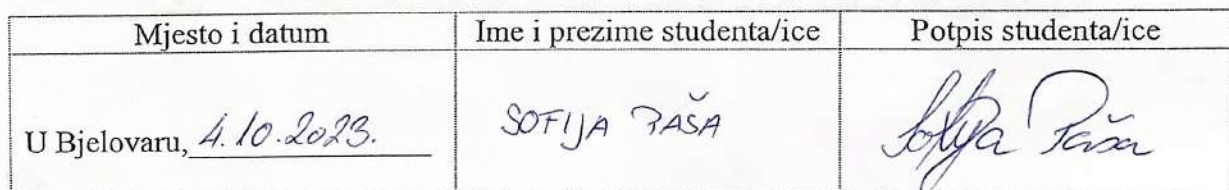 Mjesto i datum Ime i prezime studenta/ice Potpis studenta/ice
U Bjelovaru, 4.10.2023. SOFIJA PAŠA Sofija Paša